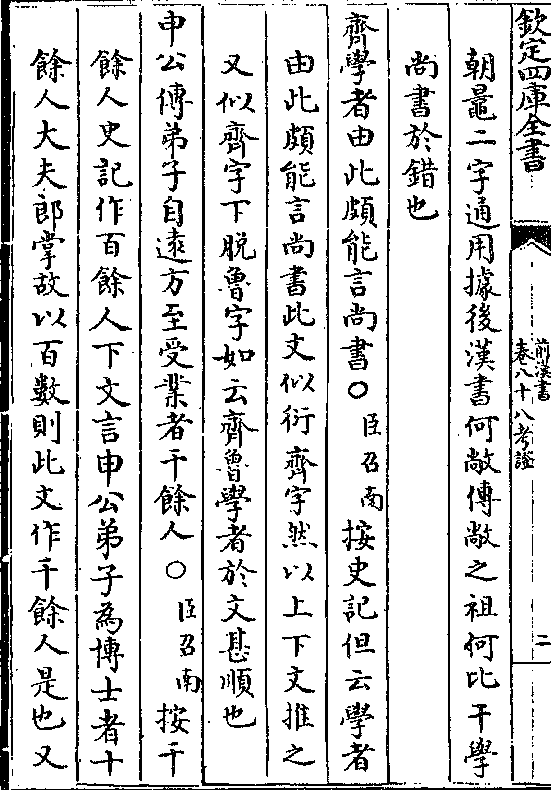 欽定四庫全書
前漢書
卷八十八考證
二
朝鼂二字通用據後漢書何敞傳敞之祖何比干學
尚書於錯也
齊學者由此頗能言尚書○臣召南按史記但云學者
由此頗能言尚書此文似衍齊字然以上下文推之
又似齊字下脫魯字如云齊魯學者於文甚順也
申公傳弟子自遠方至受業者千餘人○臣召南按千
餘人史記作百餘人下文言申公弟子為博士者十
餘人大夫郎掌故以百數則此文作千餘人是也又